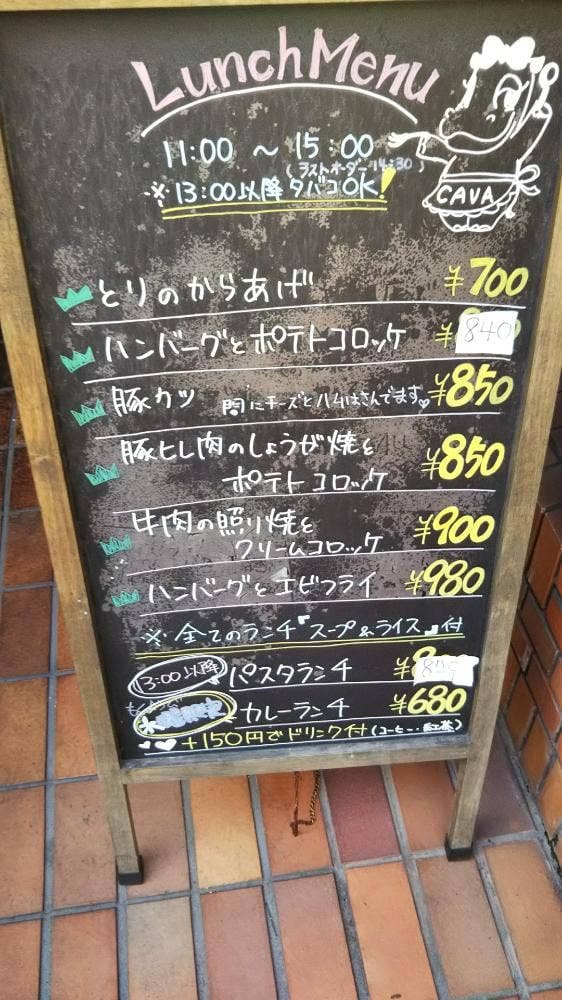 Lunch Menu
11:00 ～ 15:00
(ラストオーダー 14:30)
※13:00以降タバコOK!
CAVA
とりのからあげ ¥700
ハンバーグとポテトコロッケ ¥840
豚カツ 間にチーズとハムはさんでます ¥850
豚ヒレ肉のしょうが焼と
ポテトコロッケ ¥850
牛肉の照り焼と
クリームコロッケ ¥900
ハンバーグとエビフライ ¥980
※全てのランチ『スープ&ライス』付
13:00以降 パスタランチ ¥
カレーランチ ¥680
+150円でドリンク付(コーヒー・紅茶)